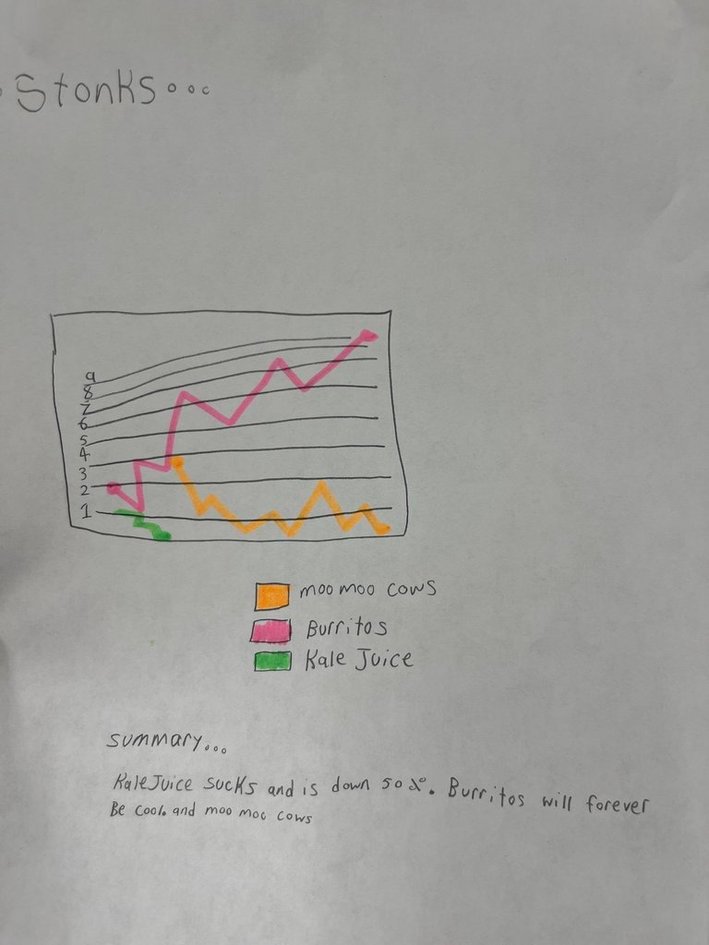 Stonks...
9
8
7
6
5
4
3
2
1
moo moo cows
Burritos
Kale Juice
summary...
Kale Juice sucks and is down 50%. Burritos will forever
Be cool. and moo moo cows